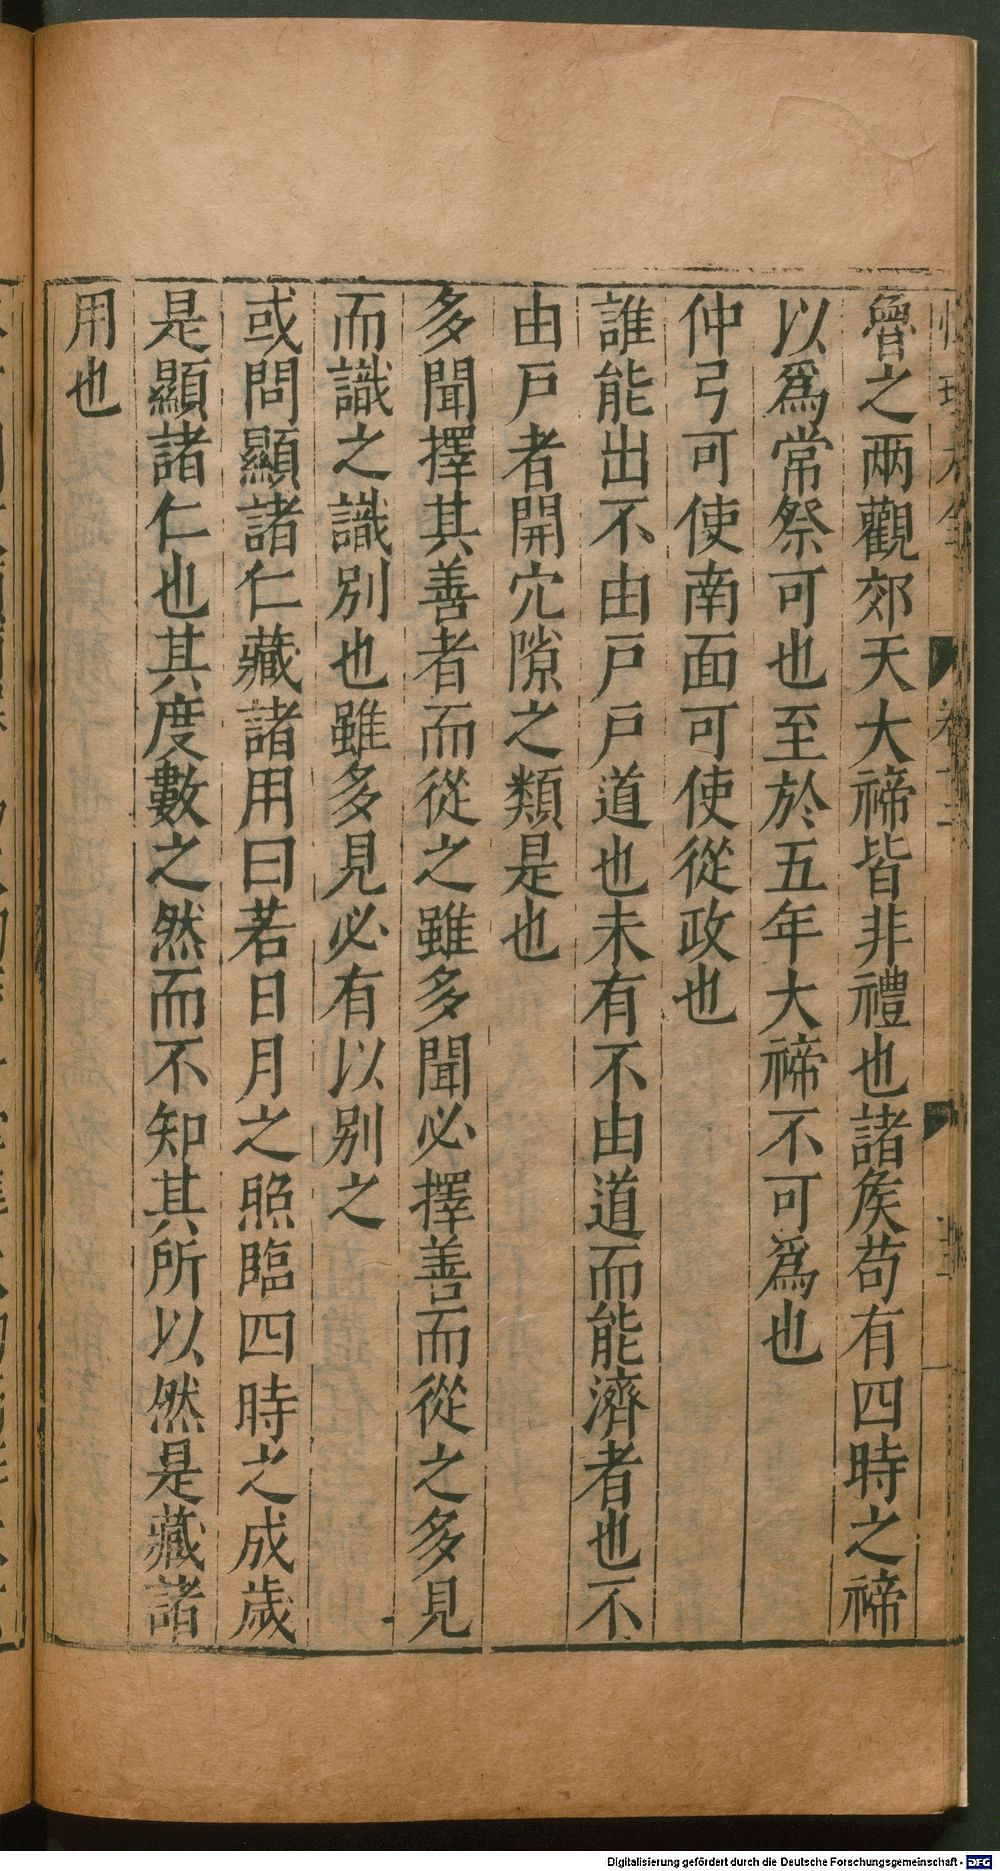 魯之两觀郊天大禘皆非禮也諸矦苟有四時之禘
以爲常祭可也至於五年大禘不可爲也
仲弓可使南面可使從政也
誰能出不由戸戸道也未有不由道而能濟者也不
由戸者開穴隙之類是也
多聞擇其善者而從之雖多聞必擇善而從之多見
而識之識別也雖多見必有以别之
或問顯諸仁藏諸用曰若日月之照臨四時之成歲
是顯諸仁也其度數之然而不知其所以然是藏諸
用也
Digitalisierung gefördert durch die Deutsche Forschungsgemeinschaft - DFG